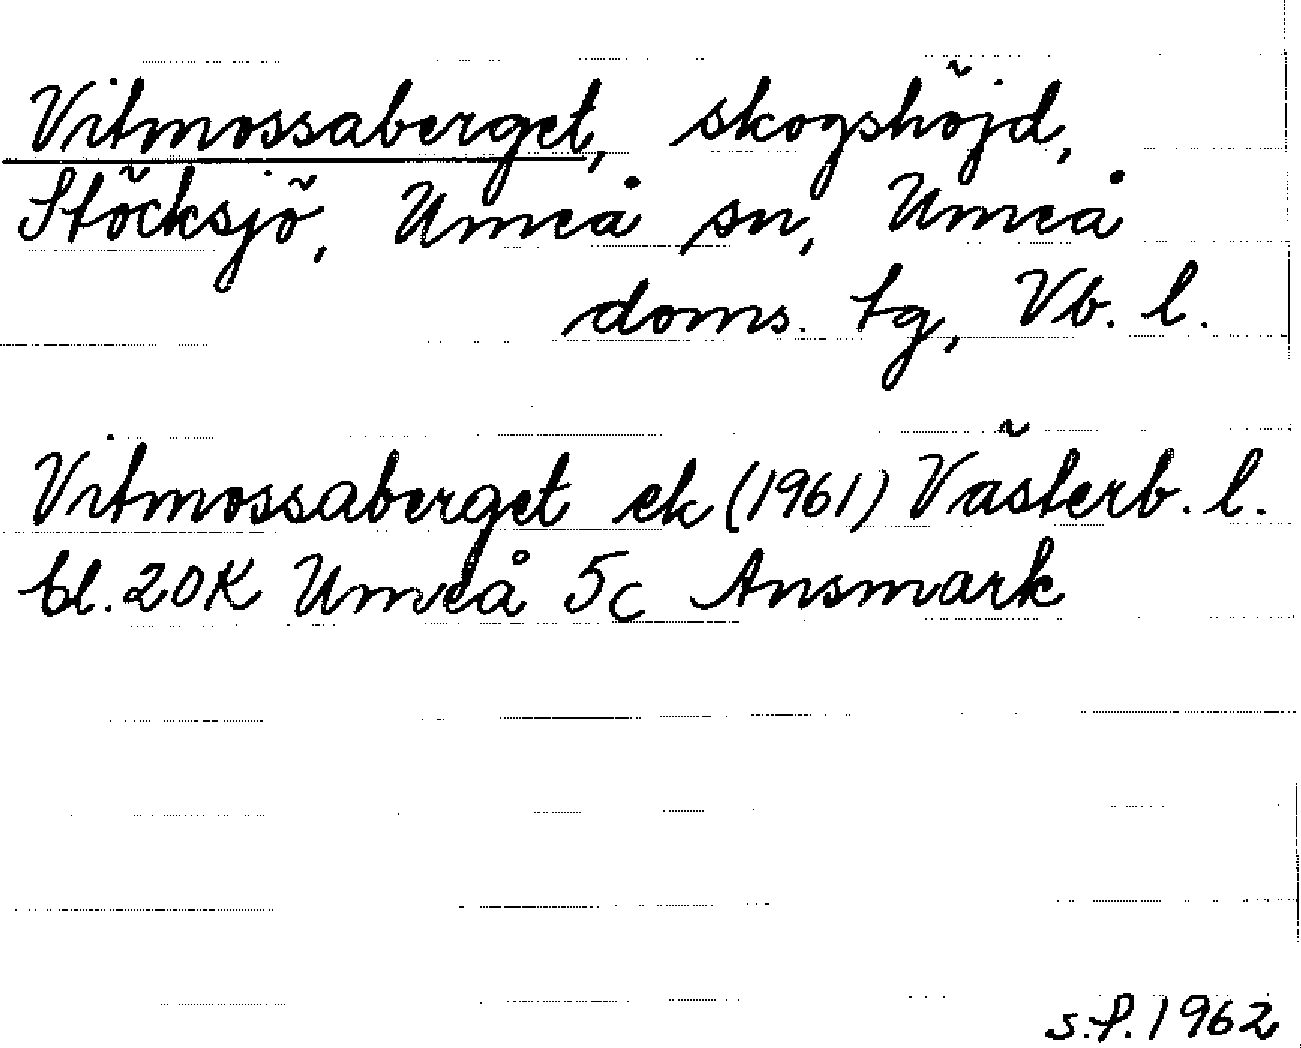 Vitmossaberget, skogshöjd,
Stöcksjö, Umeå sn, Umeå
doms. tg, Vb. l.
Vitmossaberget ek (1961) Västerb. l.
bl. 20K Umeå 5c Ansmark
s.f. 1962